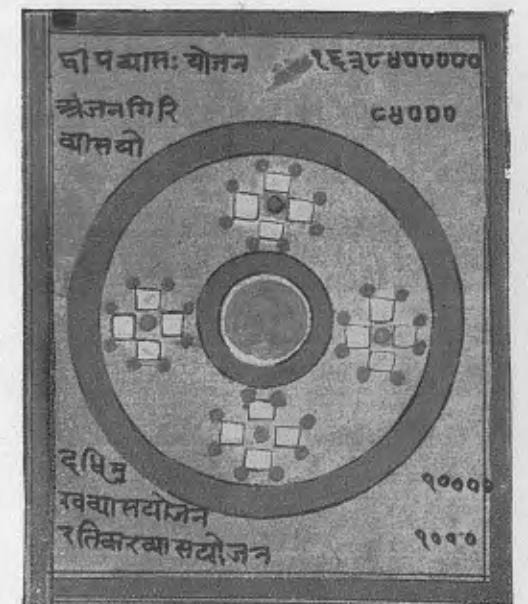 द्वीपव्यासः योजन १६३८४०००००
अंजनगिरि ८४०००
व्यासयो
दधिमु १००००
खव्यासयोजन
रतिकरव्यासयोजन १०००